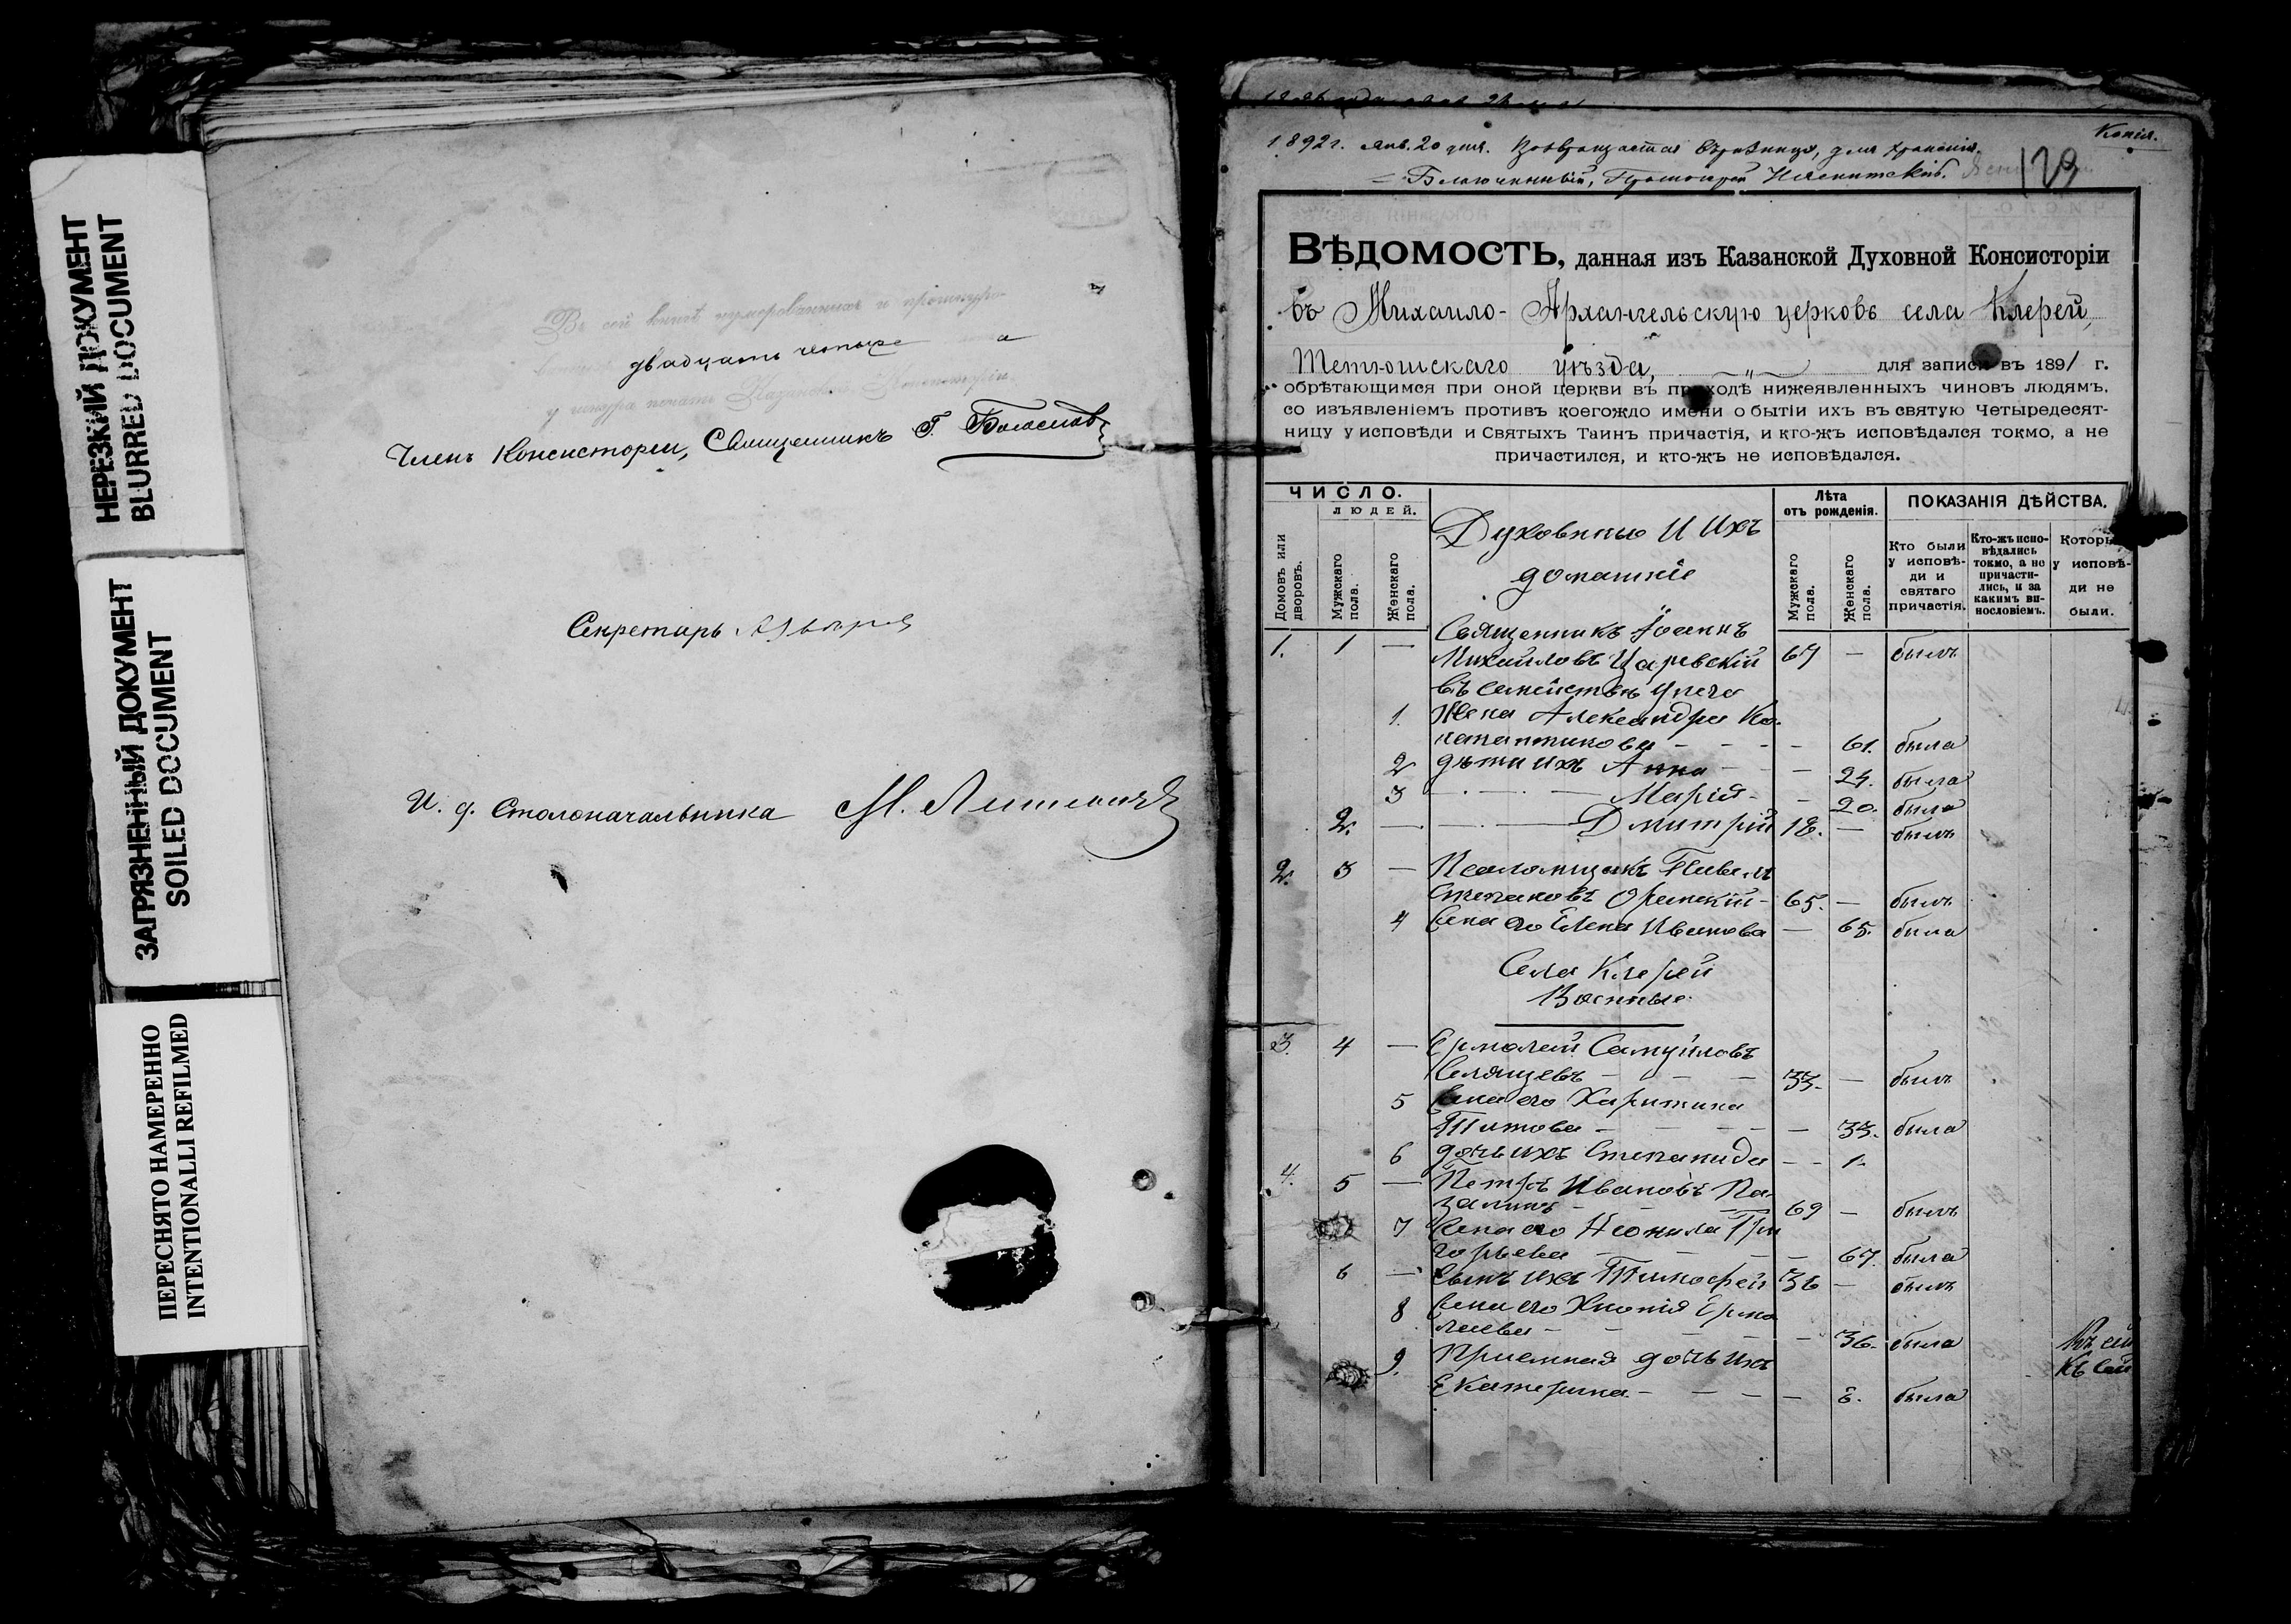 НЕРЕЗКИЙ ДОКУМЕНТ
BLURRED DOCUMENT
ЗАГРЯЗНЕННЫЙ ДОКУМЕНТ
SOILED DOCUMENT
ПЕРЕСНЯТО НАМЕРЕННО
INTENTIONALLI REFILMED
Въ сей книгѣ нумерованныхъ и прошнуро-
двадцать четыре
у шнура печать Казанской Консисторіи.
Членъ Консисторіи, Священникъ Г. Богословъ
Секретарь
И. д. Столоначальника М.
Копія.
1892 г. Янв. 20 дня. Возвращается для храненія.
Благочинный, Протоіерей
129
ВѢДОМОСТЬ, данная изъ Казанской Духовной Консисторіи
въ Михаило-Архангельскую церковь села Клерей,
Тетюшскаго уѣзда, „ для записи въ 1891 г.
обрѣтающимся при оной церкви въ приходѣ нижеявленныхъ чиновъ людямъ,
со изъявленіемъ противъ коегождо имени о бытіи ихъ въ святую Четыредесят-
ницу у исповѣди и Святыхъ Таинъ причастія, и кто-жъ исповѣдался токмо, а не
причастился, и кто-жъ не исповѣдался.
ЧИСЛО.
ЛЮДЕЙ.
Домовъ или дворовъ.
Мужскаго пола.
Женскаго пола.
Духовные и ихъ
домашніе
Лѣта отъ рожденія.
Мужскаго пола.
Женскаго пола.
ПОКАЗАНІЯ ДѢЙСТВА.
Кто были у исповѣди и святаго причастія.
Кто-жъ исповѣдались токмо, а не причастились, и за какимъ винословіемъ.
Которые у исповѣди не были.
1. 1 — Священникъ Іоаннъ
Михайловъ Царевскій 67 — былъ
въ семействѣ у него
1. Жена Александра Ко-
нстантинова — — — 61. была
2 дѣти ихъ Анна — — 24. была
3 — — — Марія — — 20. была
2. — — — Дмитрій 18. — былъ
2. 3 — Псаломщикъ Павелъ
Степановъ — 65. — былъ
4 Жена его Елена Иванова — 65. была
Села Клерей
Военные.
3. 4 — Ермолай Самуиловъ
Селянцевъ — — — 33. — былъ
5 Жена его Харитина
Титова — — — — 33. была
6 дочь ихъ Степанида — — 1.
4. 5 — Петръ Ивановъ Ка-
залинъ — — 69 — былъ
7 Жена его Неонила Гри
горьева — — — 67. была
6 — Сынъ ихъ Тимофей 36 — былъ
8 Жена его Хіонія Ермо
лаева — — — — 36. была
9. Приемная дочь ихъ
Екатерина — — — — 8. была